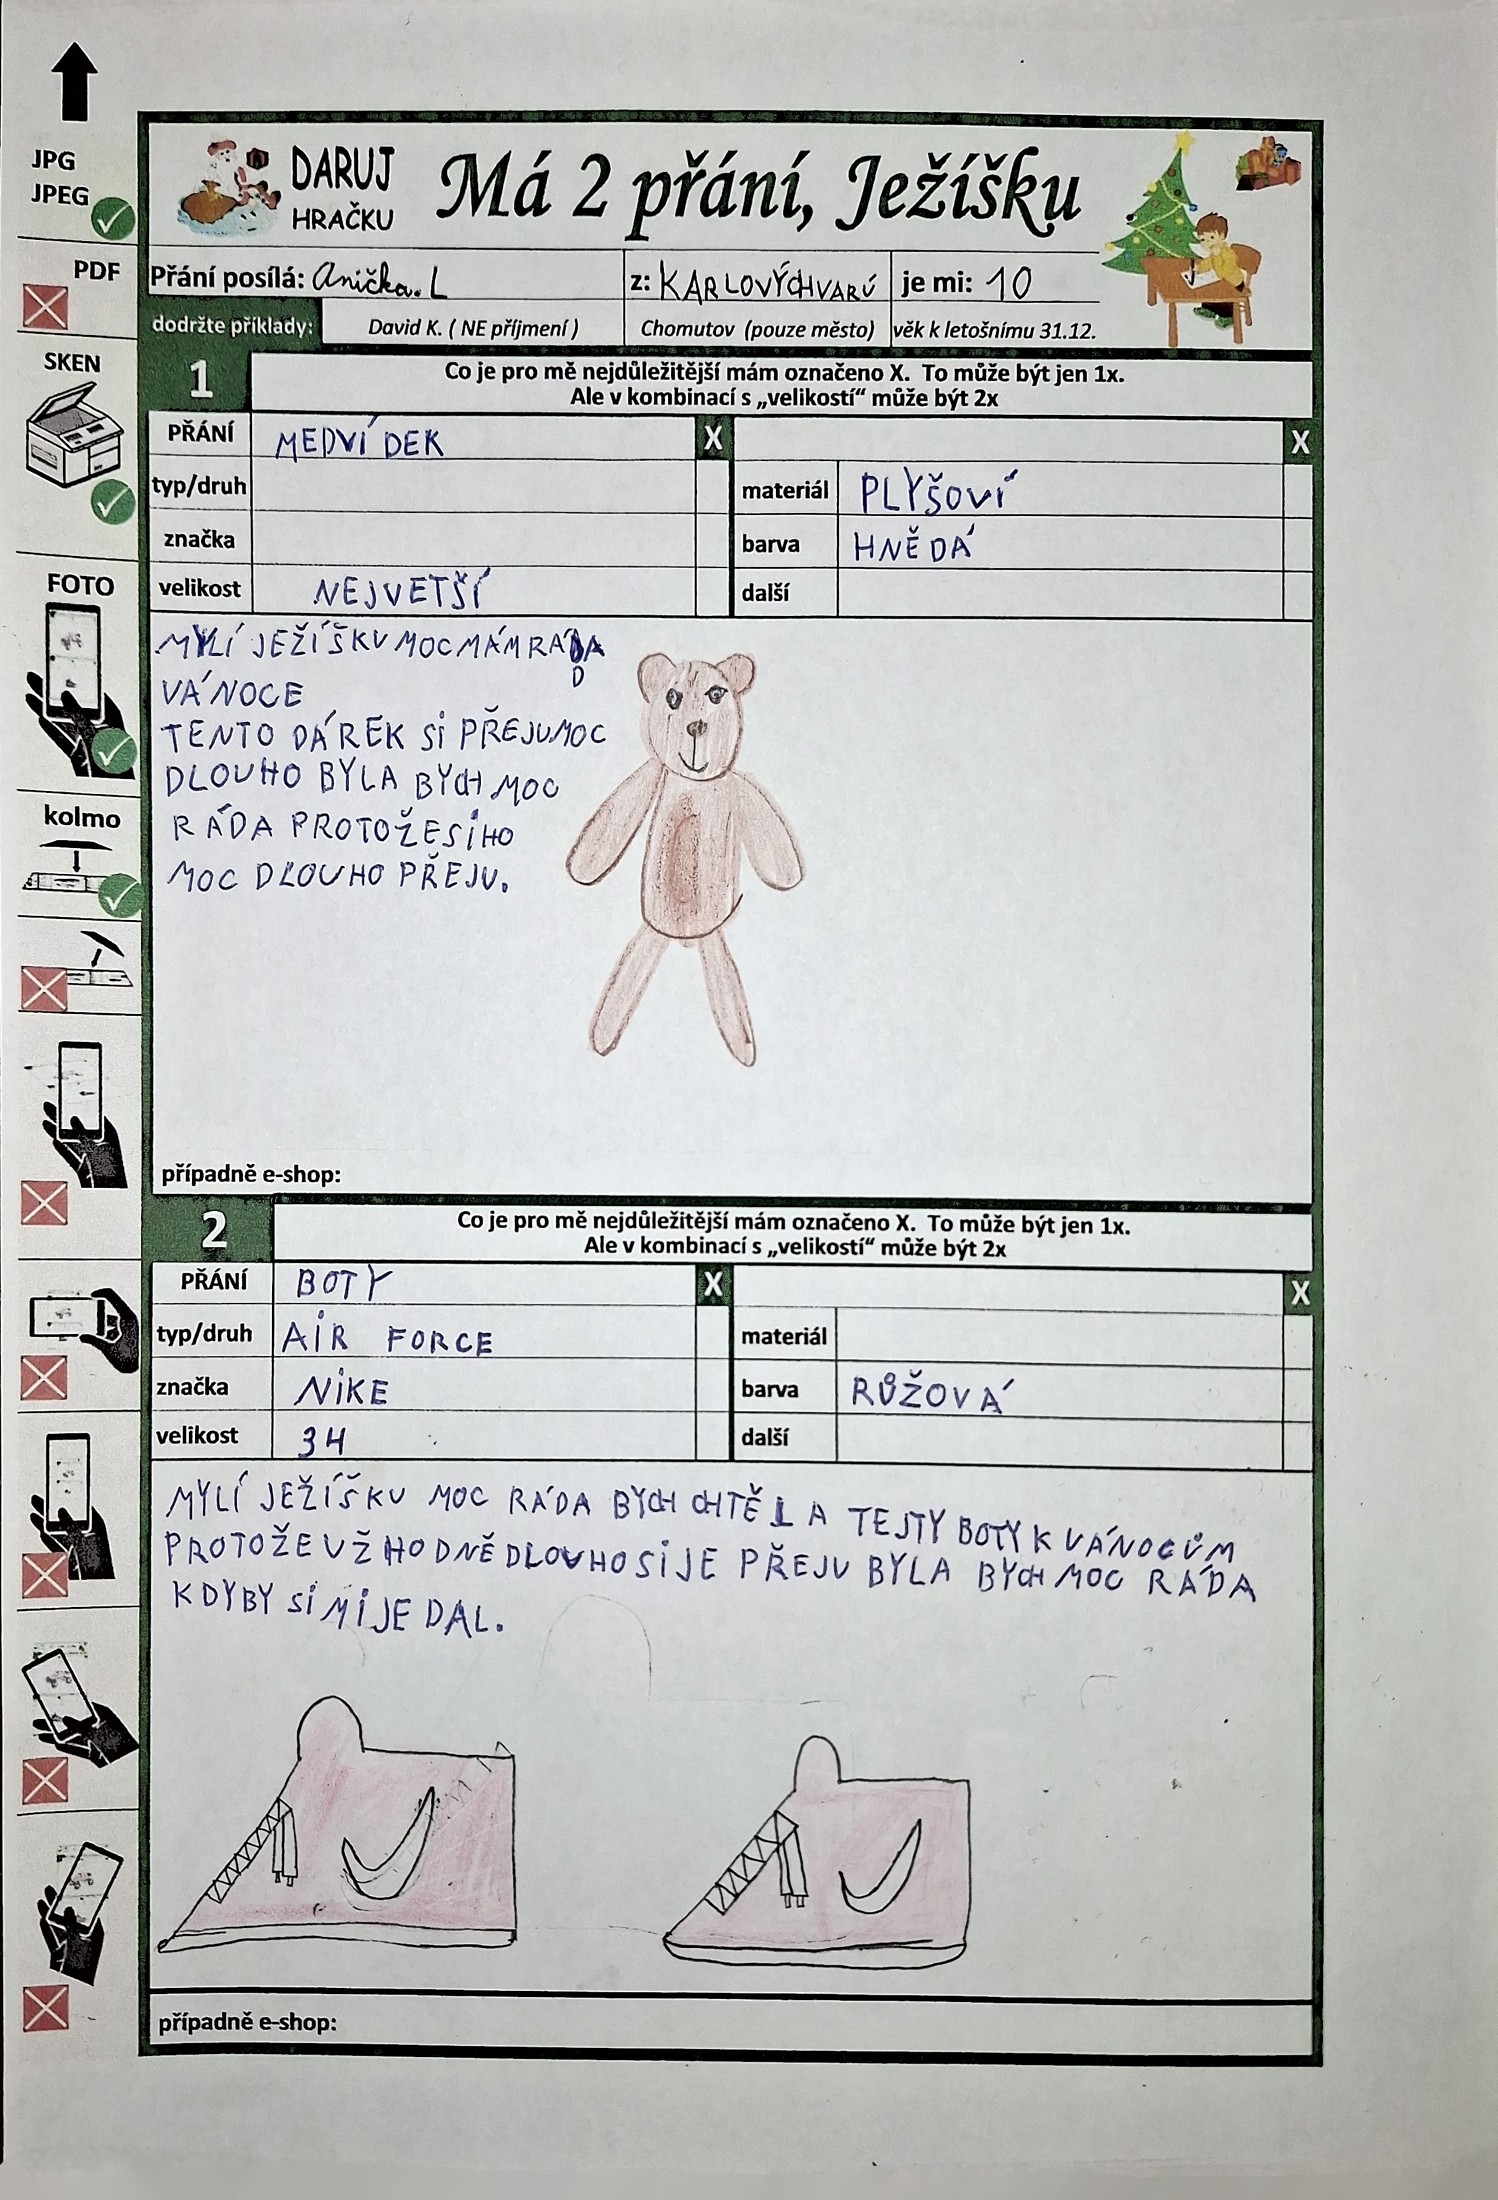 JPG
JPEG
PDF
SKEN
FOTO
kolmo
DARUJ
HRAČKU
Má 2 přání, Ježíšku
Přání posílá: Anička. L z: KARLOVÝCHVARŮ je mi: 10
dodržte příklady: David K. ( NE příjmení ) Chomutov (pouze město) věk k letošnímu 31.12.
1 Co je pro mě nejdůležitější mám označeno X. To může být jen 1x.
Ale v kombinací s „velikostí“ může být 2x
PŘÁNÍ MEDVÍDEK X X
typ/druh materiál PLYŠOVÍ
značka barva HNĚDÁ
velikost NEJVETŠÍ další
MYLÍ JEŽÍŠKU MOC MÁM RÁDA
D
VÁNOCE
TENTO DÁREK SI PŘEJU MOC
DLOUHO BYLA BYCH MOC
RÁDA PROTOŽE SI HO
MOC DLOUHO PŘEJU.
případně e-shop:
2 Co je pro mě nejdůležitější mám označeno X. To může být jen 1x.
Ale v kombinací s „velikostí“ může být 2x
PŘÁNÍ BOTY X X
typ/druh AIR FORCE materiál
značka NIKE barva RŮŽOVÁ
velikost 34 další
MYLÍ JEŽÍŠKU MOC RÁDA BYCH CHTĚLA TEJTY BOTY K VÁNOCŮM
PROTOŽE UŽ HODNĚ DLOUHO SI JE PŘEJU BYLA BYCH MOC RÁDA
KDYBY SI MI JE DAL.
případně e-shop: